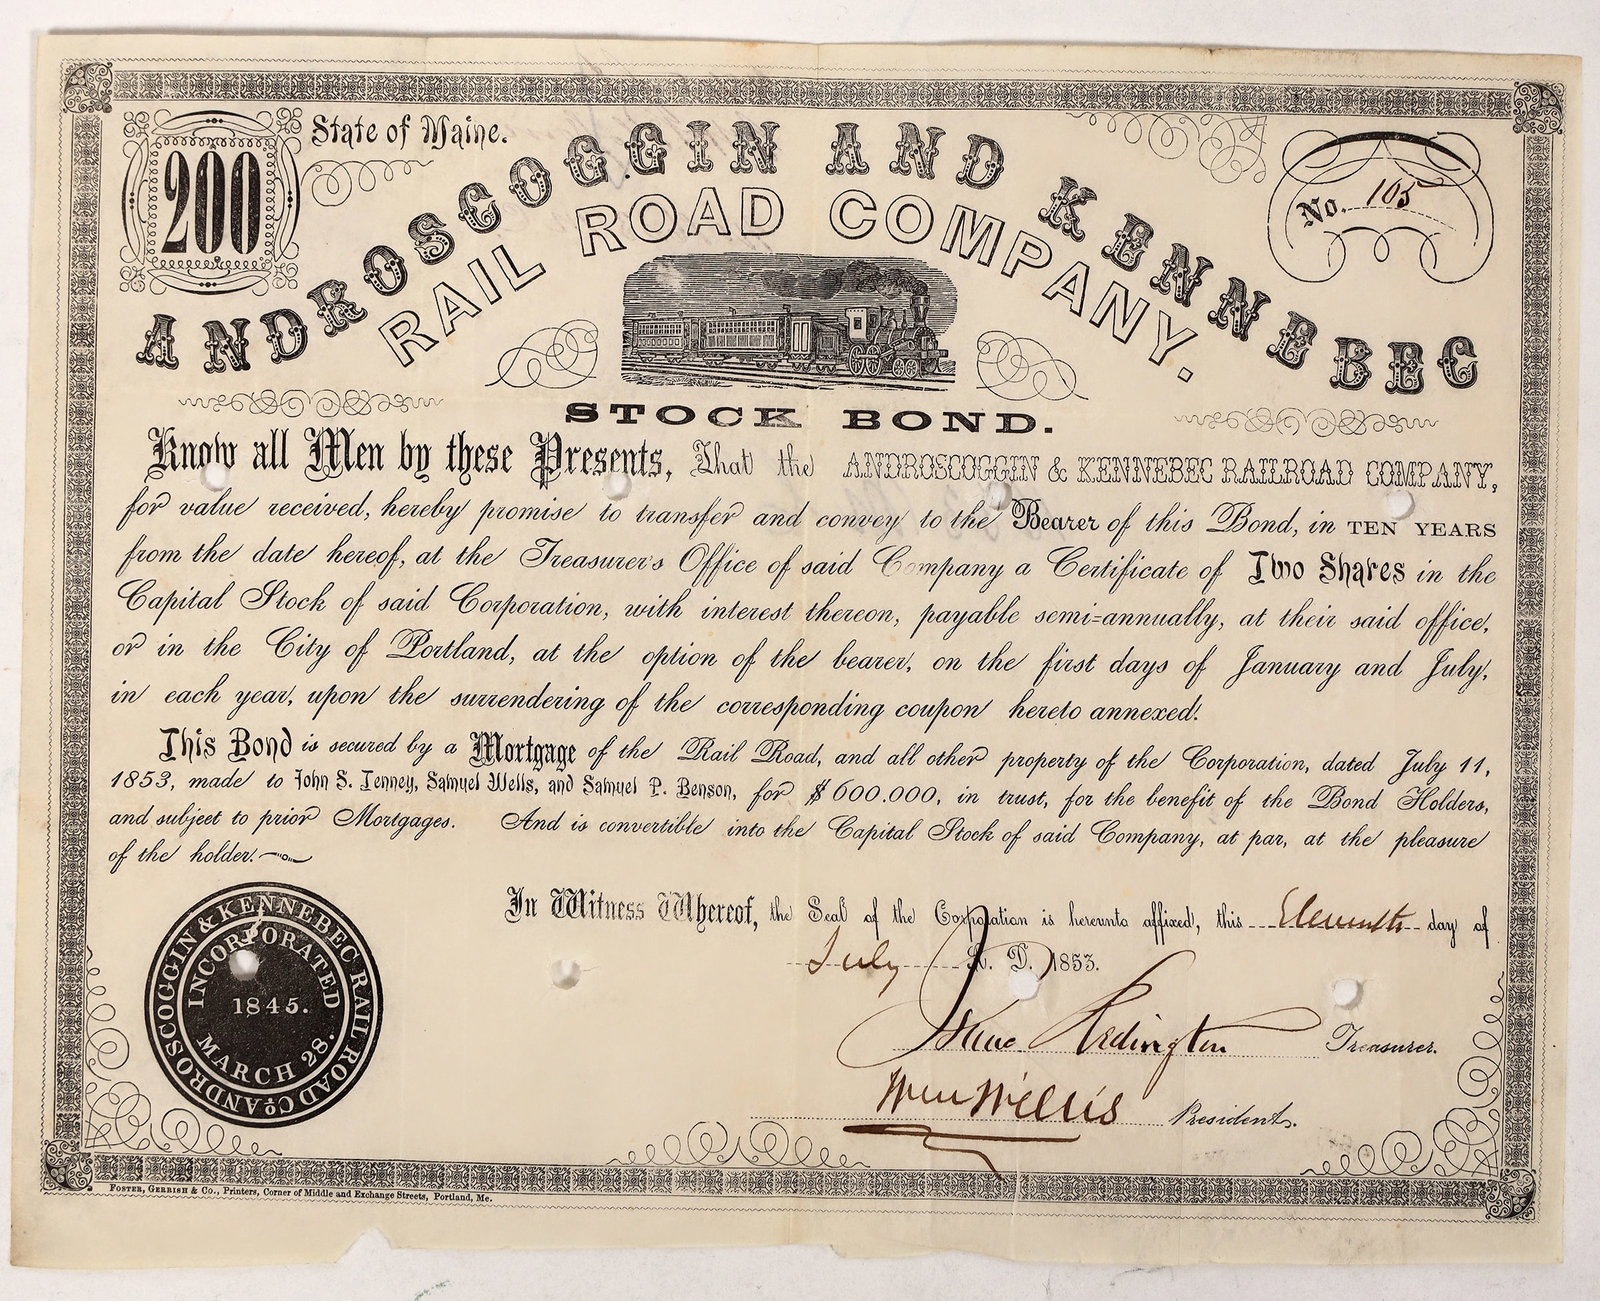 200
State of Maine.
No. 105
ANDROSCOGGIN AND KENNEBEC
RAIL ROAD COMPANY.
STOCK BOND.
Know all Men by these Presents, That the ANDROSCOGGIN & KENNEBEC RAILROAD COMPANY,
for value received, hereby promise to transfer and convey to the Bearer of this Bond, in TEN YEARS
from the date hereof, at the Treasurer's Office of said Company a Certificate of Two Shares in the
Capital Stock of said Corporation, with interest thereon, payable semi=annually, at their said office,
or in the City of Portland, at the option of the bearer, on the first days of January and July,
in each year, upon the surrendering of the corresponding coupon hereto annexed.
This Bond is secured by a Mortgage of the Rail Road, and all other property of the Corporation, dated July 11,
1853, made to John S. Tenney, Samuel Wells, and Samuel P. Benson, for $600.000, in trust, for the benefit of the Bond Holders,
and subject to prior Mortgages. And is convertible into the Capital Stock of said Company, at par, at the pleasure
of the holder.
In Witness Whereof, the Seal of the Corporation is hereunto affixed, this Eleventh day of
July A. D. 1853.
Treasurer.
Wm Willis President.
ANDROSCOGGIN & KENNEBEC RAIL ROAD Co.
INCORPORATED
1845.
MARCH 28.
FOSTER, GERRISH & Co., Printers, Corner of Middle and Exchange Streets, Portland, Me.